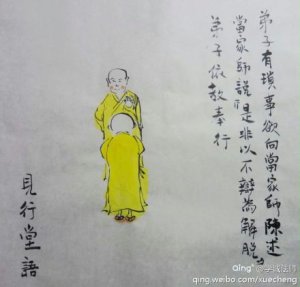 弟子有瑣事欲向當家師陳述
當家師說「是非以不辯為解脱」
弟子依教奉行
見行堂語
Qing @学诚法师
qing.weibo.com/xuecheng